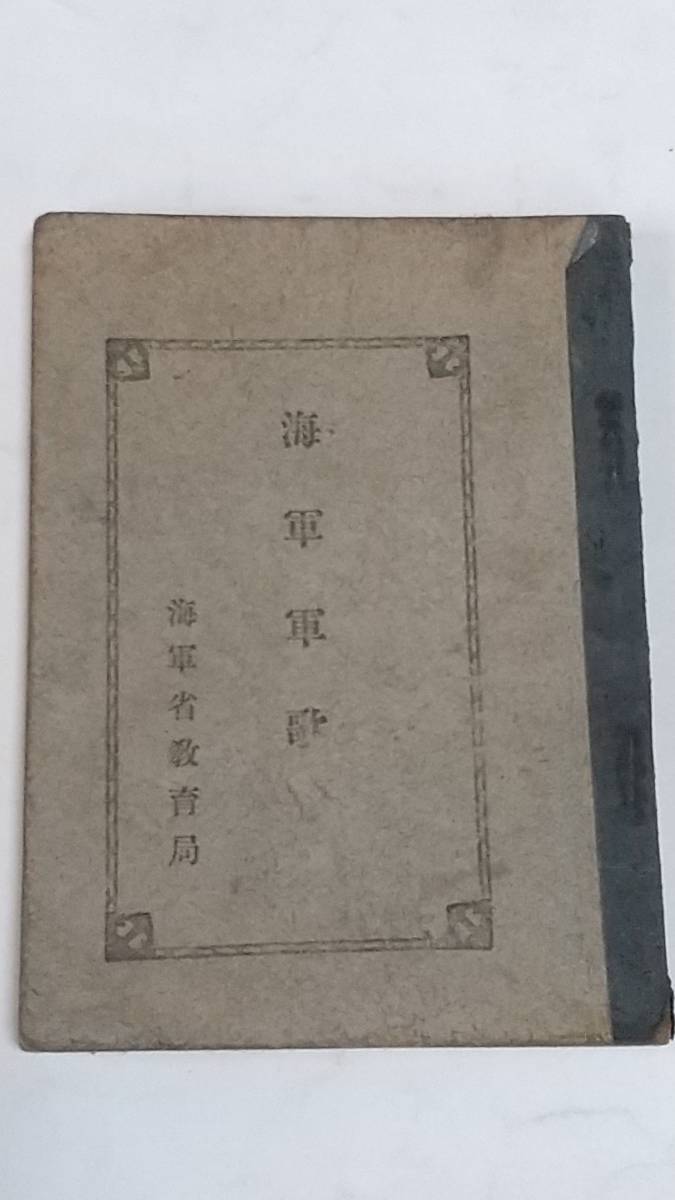 海軍軍歌
海軍省教育局